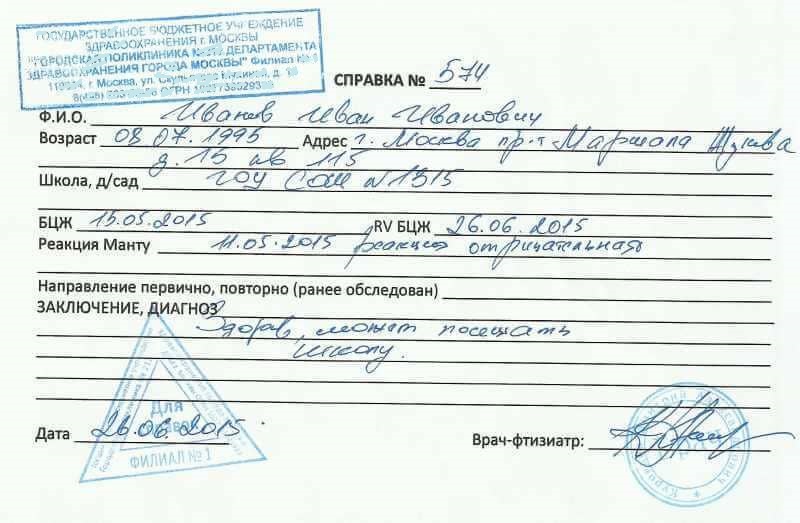 ГОСУДАРСТВЕННОЕ БЮДЖЕТНОЕ УЧРЕЖДЕНИЕ
ЗДРАВООХРАНЕНИЯ г. МОСКВЫ
"ГОРОДСКАЯ ПОЛИКЛИНИКА № ДЕПАРТАМЕНТА
ЗДРАВООХРАНЕНИЯ ГОРОДА МОСКВЫ" Филиал №
г. Москва, ул. д.
ОГРН
СПРАВКА № 574
Ф.И.О. Иванов Иван Иванович
Возраст 08.07.1995 Адрес г. Москва пр-т Маршала Жукова
д. 15 кв 115
Школа, д/сад ГОУ СОШ N1315
БЦЖ 15.05.2015 RV БЦЖ 26.06.2015
Реакция Манту 11.05.2015 реакция отрицательная
Направление первично, повторно (ранее обследован)
ЗАКЛЮЧЕНИЕ, ДИАГНОЗ
Здоров, может посещать
школу.
Для
Дата 26.06.2015 Врач-фтизиатр:
ФИЛИАЛ №1